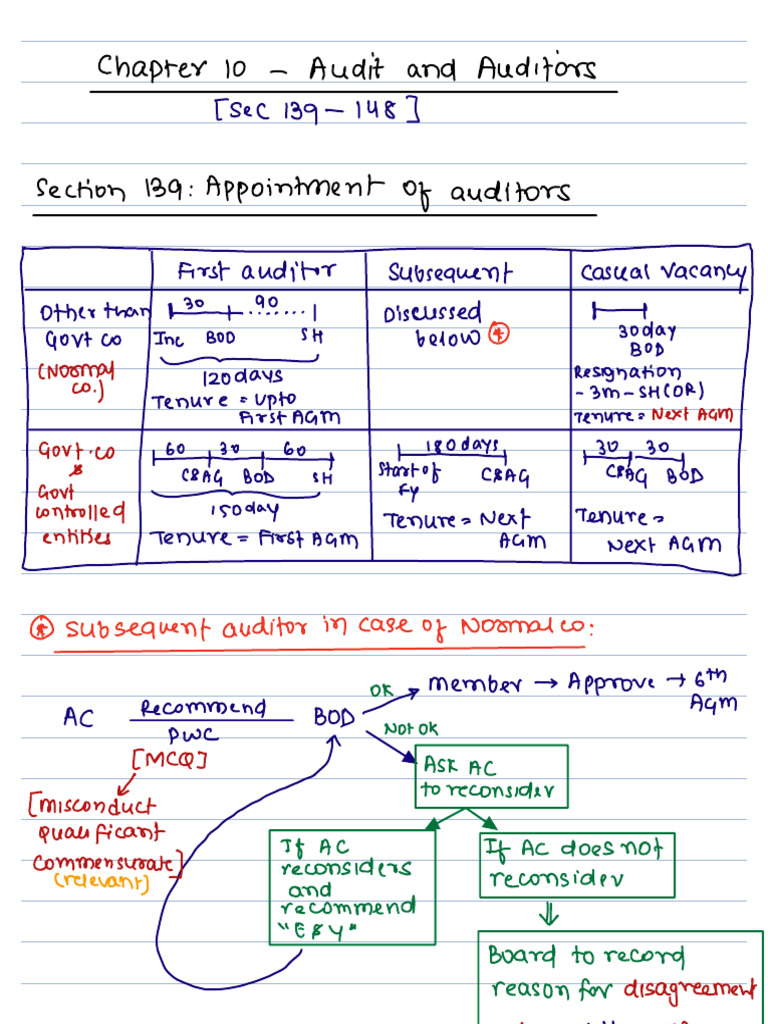 Chapter 10 - Audit and Auditors
[Sec 139 - 148]
Section 139: Appointment of auditors
First auditor
Subsequent
Casual vacancy
Other than
Govt co
(Normal
co.)
30 90
Inc BOD SH
120 days
Tenure = upto
First AGM
Discussed
below *
30 day
BOD
Resignation
- 3m - SH (OR)
Tenure = Next AGM
Govt. co
&
Govt
controlled
entities
60 30 60
C&AG BOD SH
150 day
Tenure = First AGM
180 days
Start of C&AG
FY
Tenure = Next
AGM
30 30
C&AG BOD
Tenure =
Next AGM
* Subsequent auditor in case of Normal co:
AC Recommend BOD
PWC
[MCQ]
[misconduct
qualificant
commensurate]
(relevant)
OK
member → Approve → 6th
AGM
Not OK
Ask AC
to reconsider
If AC
reconsiders
and
recommend
"E&Y"
If AC does not
reconsider
Board to record
reason for disagreement